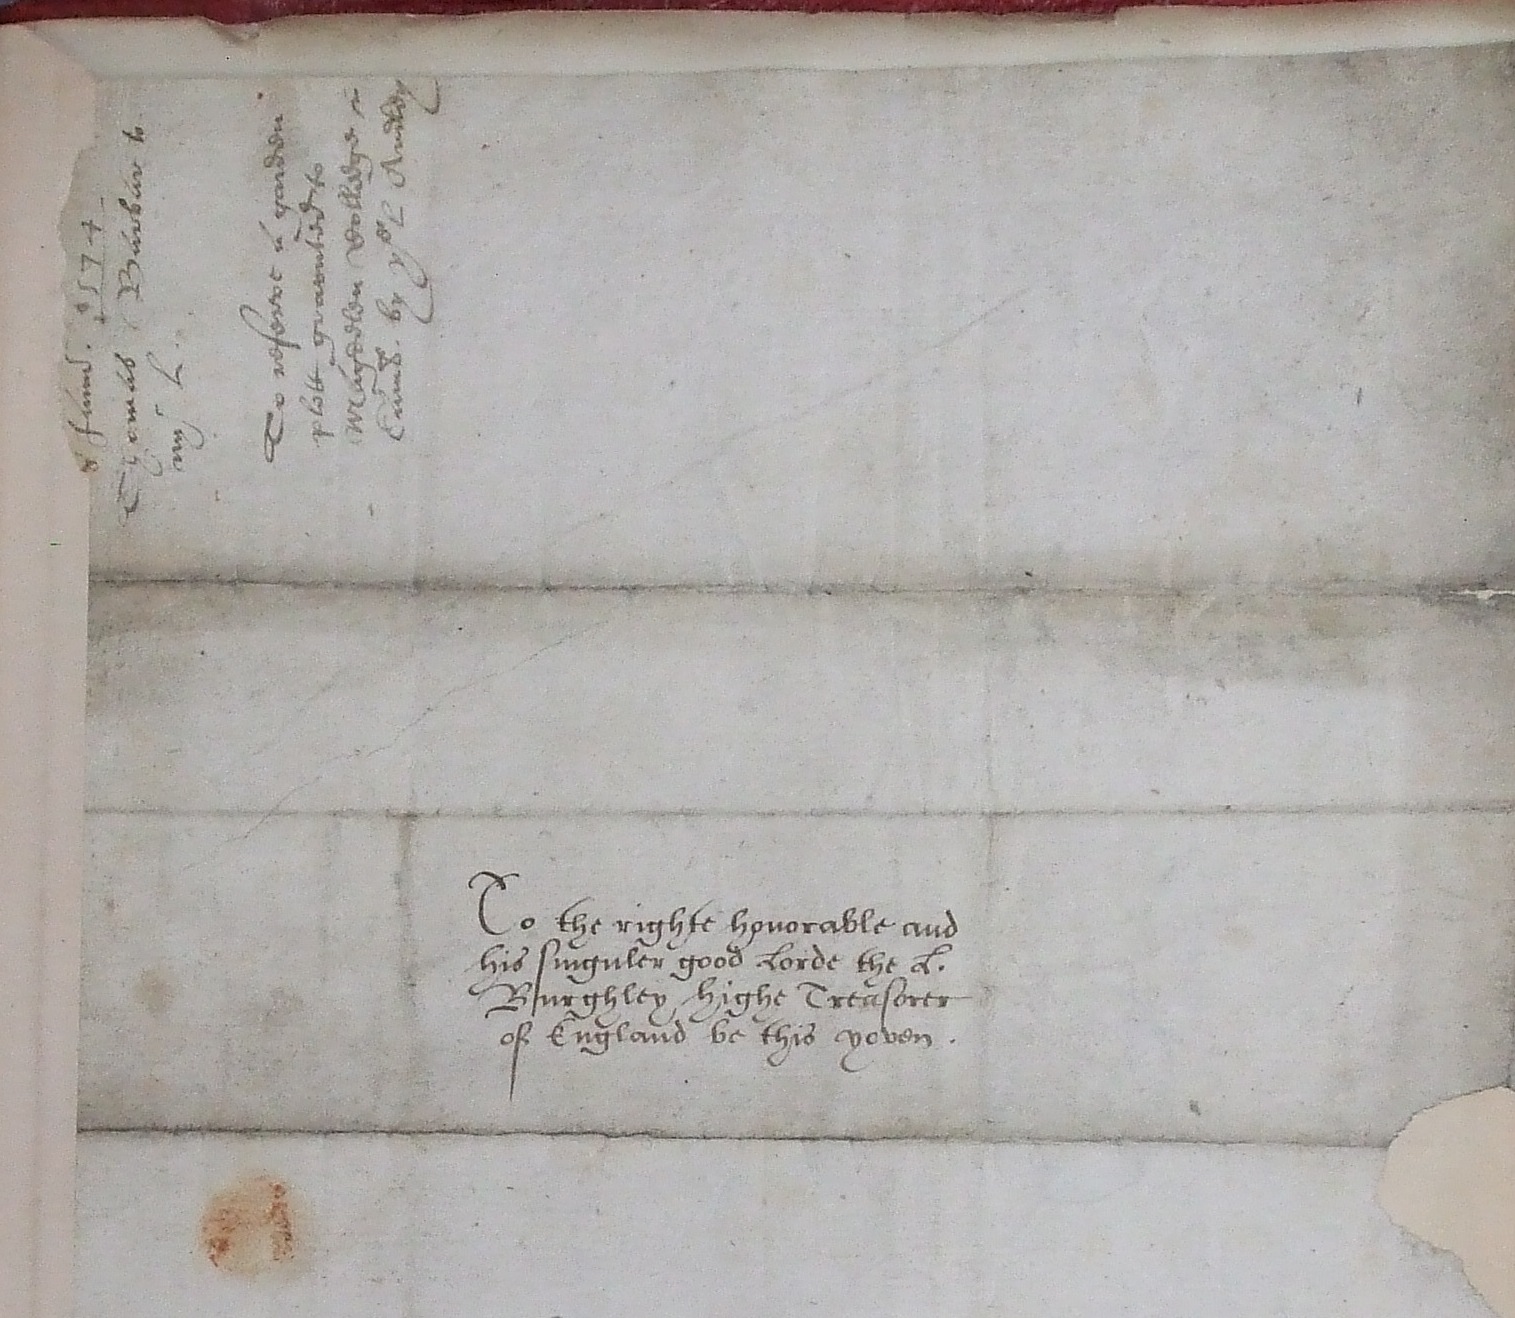 8 Junij. 1574
Thomas Barbar to
my L.
To reserve a garden
plott graunted to
Magdalen Colledge in
Camb. by ye L Audley
To the righte honorable and
his singuler good Lorde the L.
Burghley highe Treasorer
of England be this yoven.